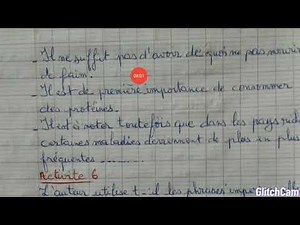 - Il ne suffit pas d'avoir de quoi ne pas mourir
de faim.
- Il est de première importance de consommer
des protéines.
- Il est à noter toutefois que dans les pays
certaines maladies deviennent de plus en plus
fréquentes ..........
Activité 6
L'auteur utilise t-il les phrases
GlitchCam